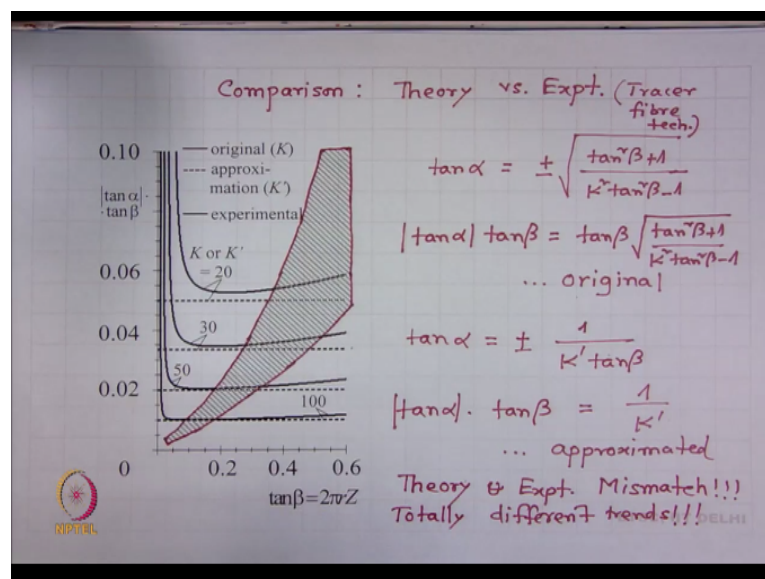 Comparison : Theory vs. Expt. (Tracer
fibre
tech.)
0.10
0.06
0.04
0.02
0
0.2
0.4
0.6
|tan α| ·
· tan β
original (K)
approxi-
mation (K')
experimental
K or K'
= 20
30
50
100
tanβ=2πrZ
tanα = ± √(tan²β+1 / K²tan²β-1)
|tanα| tanβ = tanβ √(tan²β+1 / K²tan²β-1)
... original
tanα = ± 1 / K'tanβ
|tanα|. tanβ = 1 / K'
... approximated
Theory & Expt. Mismatch!!!
Totally different trends!!!
NPTEL
DELHI